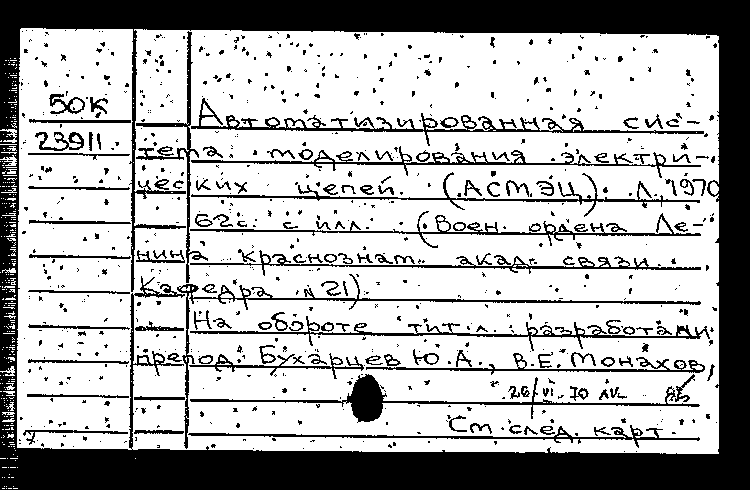 50К
Автоматизированная сис-
23911
тема моделирования электри-
ческих цепей. (АСМЭЦ). Л., 1970
62с. с илл. (Воен. ордена Ле-
нина краснознам. акад. связи.
Кафедра №21)
На обороте тит. л. разработали
препод. Бухарцев Ю.А., В.Е. Монахов,
26/VI-70
См. след. карт.